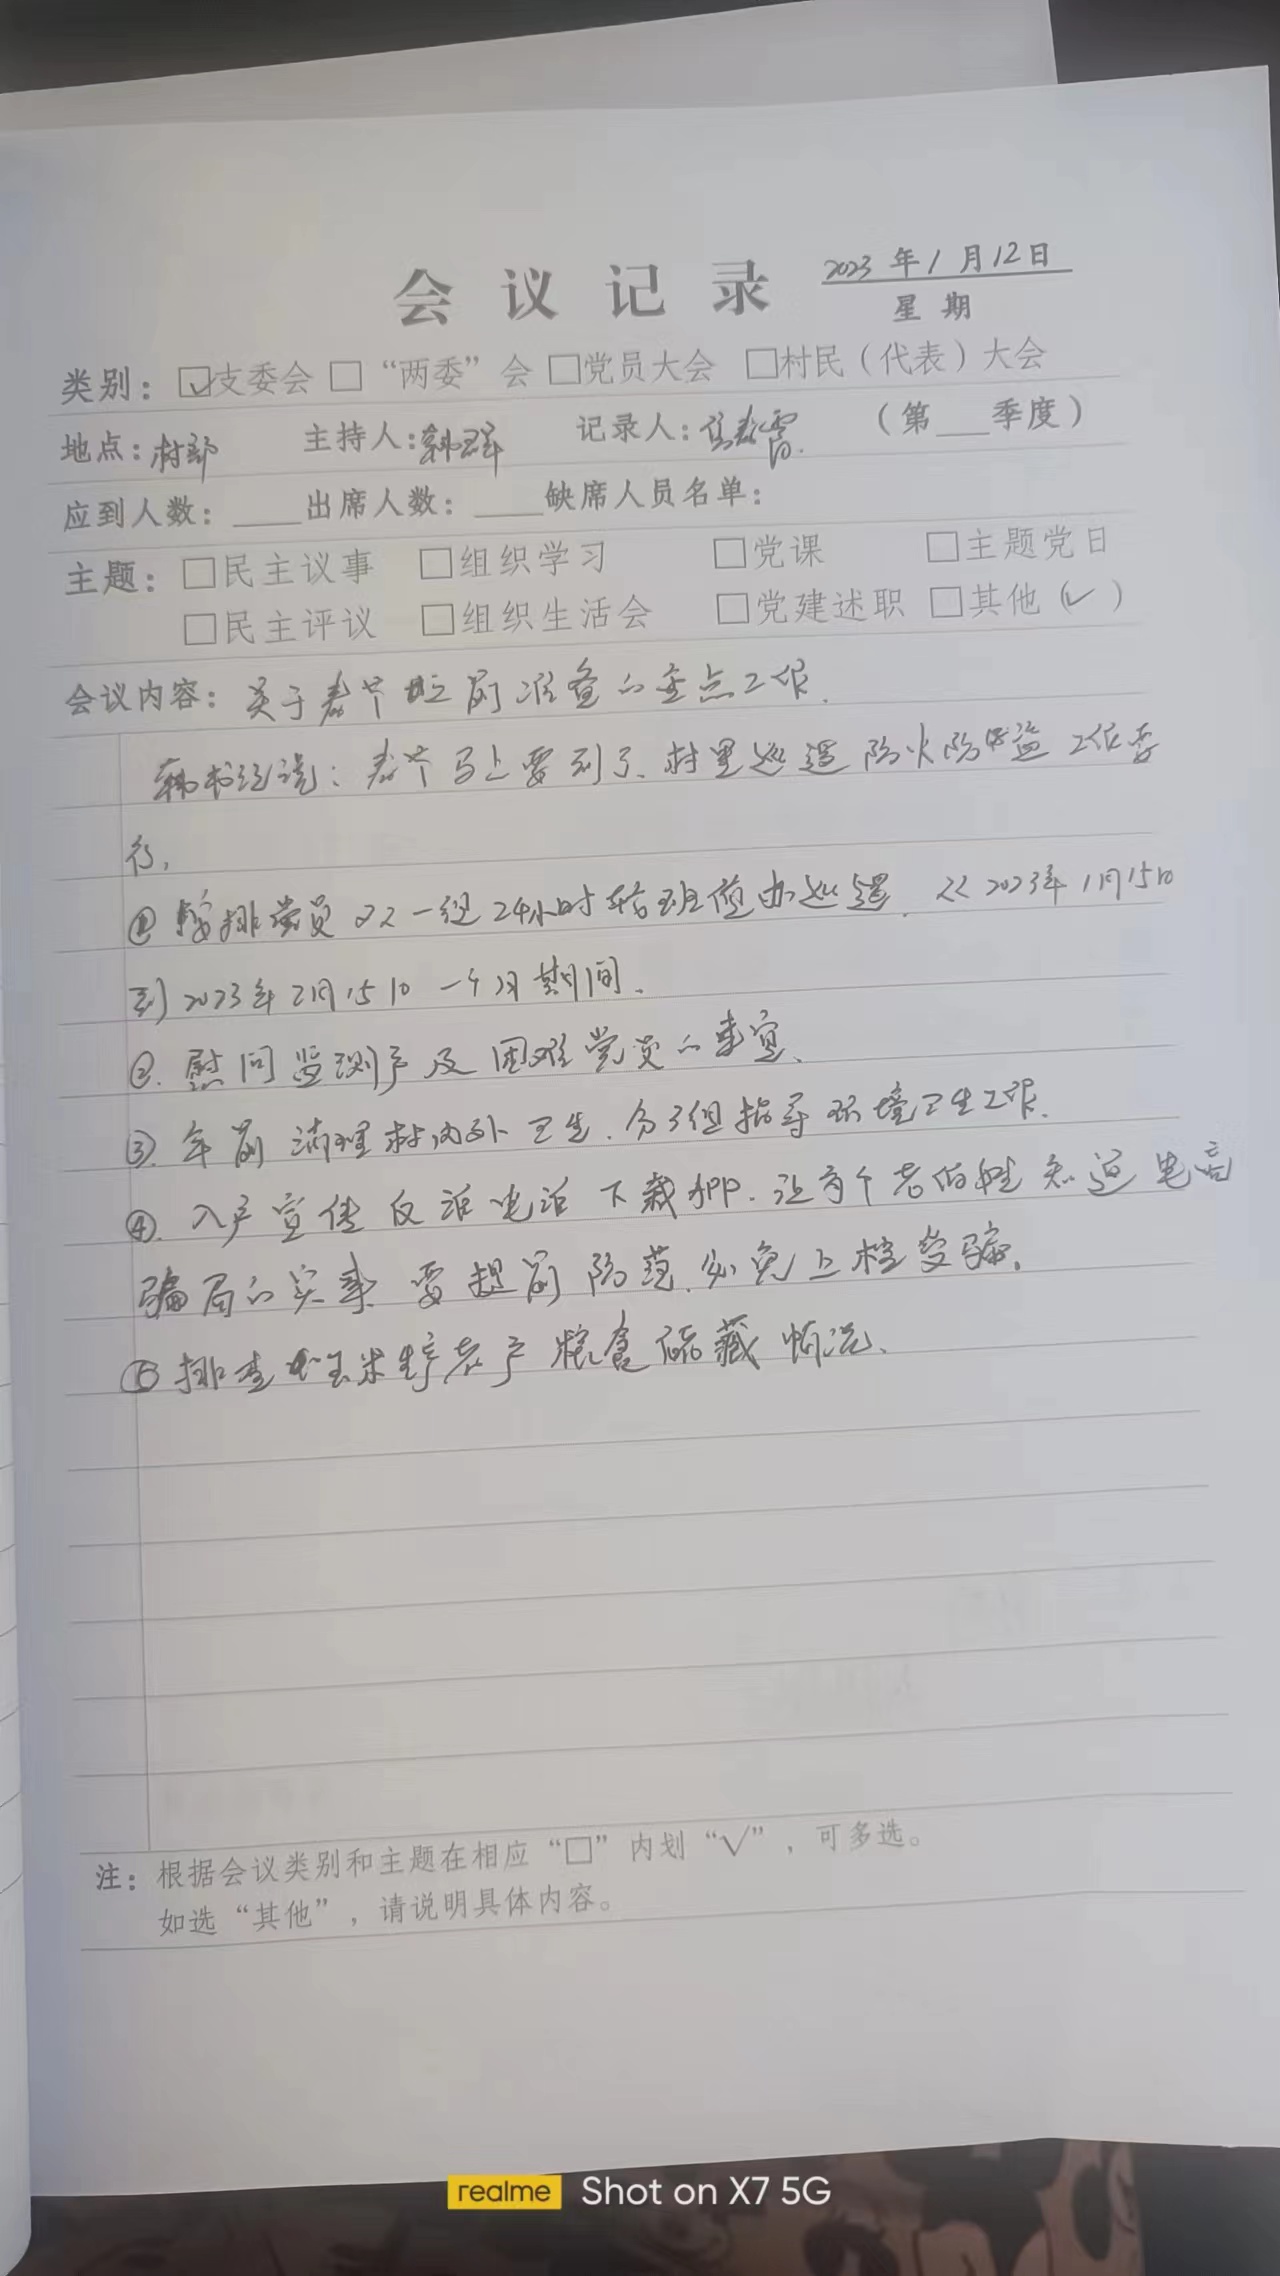 会议记录 2023年1月12日
星期
类别：☑支委会 □“两委”会 □党员大会 □村民（代表）大会
地点：村部 主持人：韩 记录人： （第___季度）
应到人数：____出席人数：____缺席人员名单：
主题：□民主议事 □组织学习 □党课 □主题党日
□民主评议 □组织生活会 □党建述职 □其他（✓）
会议内容：关于春节 前准备的重点工作.
韩书记说：春节马上要到了、村里巡逻防火防盗工作要
行，
① 安排党员双人一组24小时轮班值办巡逻. 从2023年1月15日
到2023年2月15日一个月期间.
②. 慰问监测户及困难党员的事宜、
③. 年前清理村内外卫生. 分3组指导环境卫生工作.
④. 入户宣传反诈电话下载APP. 让每个老百姓知道电信
骗局的实事 要提前防范. 免上 受骗.
⑤ 排查 玉米 户粮食储藏情况、
注：根据会议类别和主题在相应“□”内划“√”，可多选。
如选“其他”，请说明具体内容。
realme Shot on X7 5G